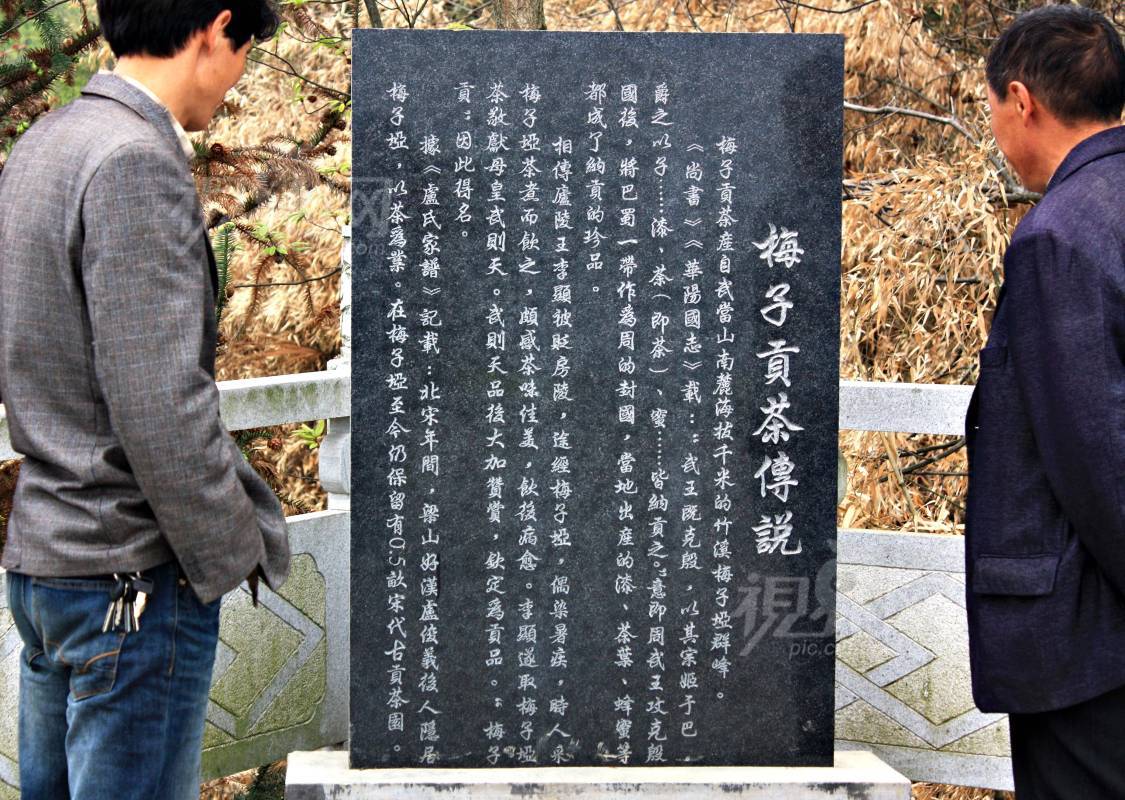 梅子貢茶傳説
梅子貢茶産自武當山南麓海拔千米的竹溪梅子埡群峰。
《尚書》《華陽國志》載：“武王既克殷，以其宗姬于巴，
爵之以子……漆、茶（即茶）、蜜……皆納貢之。”意即周武王攻克殷
國後，將巴蜀一帶作爲周的封國，當地出産的漆、茶葉、蜂蜜等
都成了納貢的珍品。
相傳廬陵王李顯被貶房陵，途經梅子埡，偶染暑疾，時人采
梅子埡茶煮而飲之，頗感茶味佳美，飲後病愈。李顯遂取梅子埡
茶敬獻母皇武則天。武則天品後大加贊賞，欽定爲貢品。“梅子
貢”因此得名。
據《盧氏家譜》記載：北宋年間，梁山好漢盧俊義後人隱居
梅子埡，以茶爲業。在梅子埡至今仍保留有0.5畝宋代古貢茶園。
視
pic.c
网